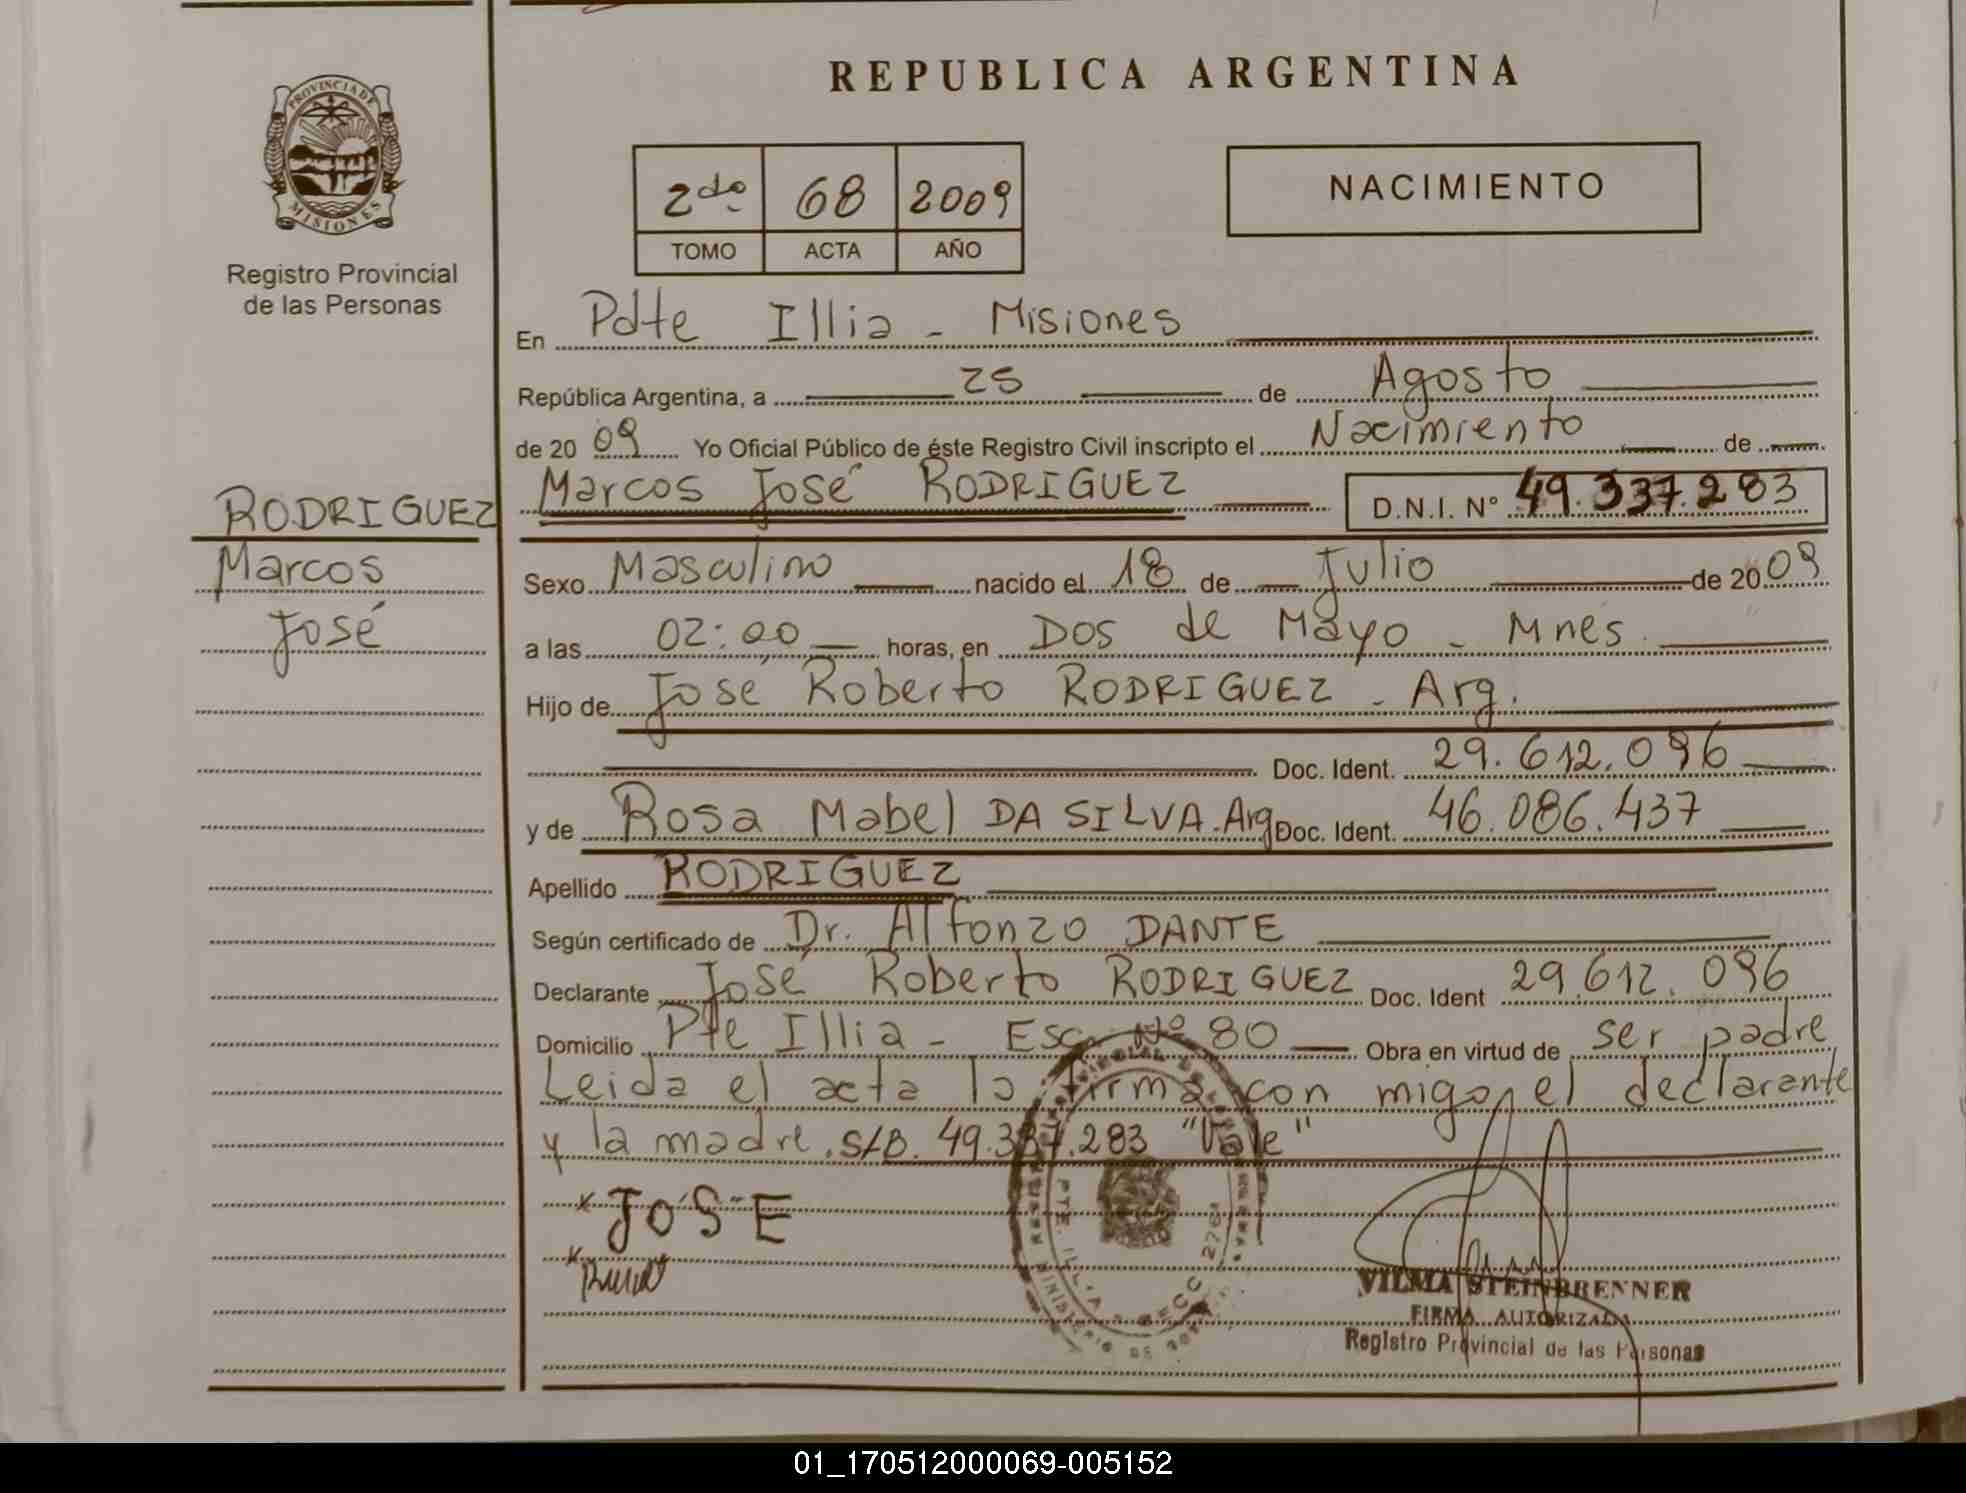 REPUBLICA ARGENTINA
PROVINCIA DE
MISIONES
Registro Provincial
de las Personas
2do 68 2009
TOMO ACTA AÑO
NACIMIENTO
En Pdte Illia - Misiones
República Argentina, a 25 de Agosto
de 2009 Yo Oficial Público de éste Registro Civil inscripto el Nacimiento de
Marcos José RODRIGUEZ D.N.I. Nº 49.337.283
RODRIGUEZ
Marcos
José
Sexo Masculino nacido el 18 de Julio de 2009
a las 02:00 horas, en DOS de Mayo - Mnes.
Hijo de José Roberto RODRIGUEZ - Arg.
Doc. Ident. 29.612.096
y de Rosa Mabel DA SILVA. Arg Doc. Ident. 46.086.437
Apellido RODRIGUEZ
Según certificado de Dr. Alfonzo DANTE
Declarante José Roberto RODRIGUEZ Doc. Ident 29.612.096
Domicilio Pte Illia - Esc. Nº 80 Obra en virtud de ser padre
Leida el acta la firma con migo, el declarante
y la madre. S/B. 49.337.283 "Vale"
x JOSE
x
PTE. ILLIA SECC 2764
MINISTERIO DE
VILMA STEINBRENNER
FIRMA AUTORIZADA
Registro Provincial de las Personas
01_170512000069-005152